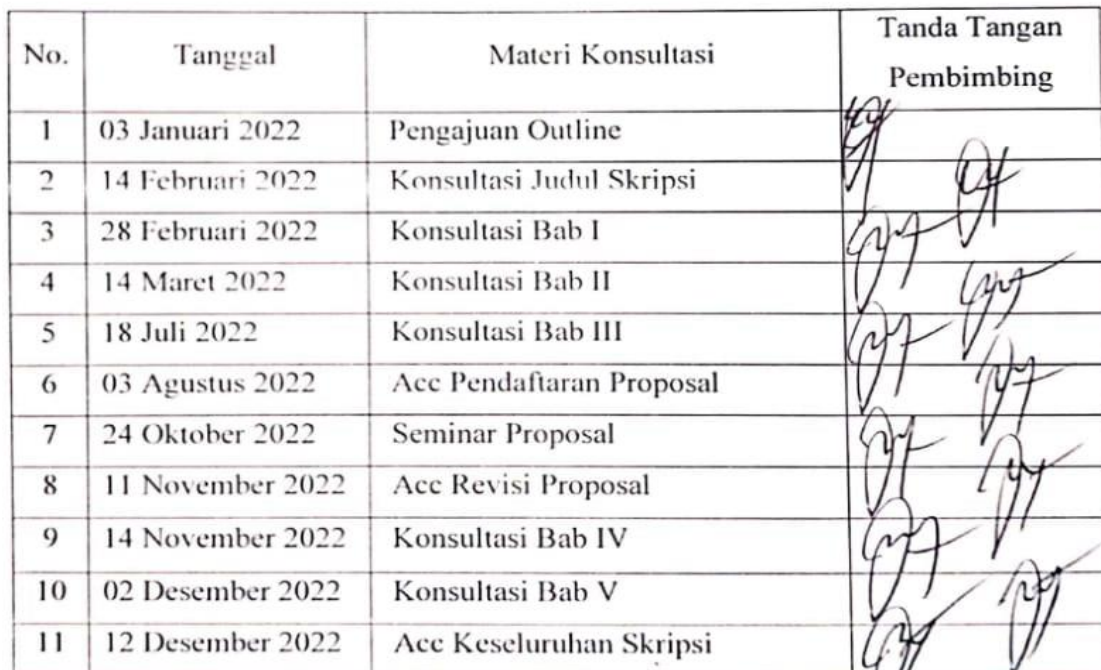 No. Tanggal Materi Konsultasi Tanda Tangan
Pembimbing
1 03 Januari 2022 Pengajuan Outline
2 14 Februari 2022 Konsultasi Judul Skripsi
3 28 Februari 2022 Konsultasi Bab I
4 14 Maret 2022 Konsultasi Bab II
5 18 Juli 2022 Konsultasi Bab III
6 03 Agustus 2022 Acc Pendaftaran Proposal
7 24 Oktober 2022 Seminar Proposal
8 11 November 2022 Acc Revisi Proposal
9 14 November 2022 Konsultasi Bab IV
10 02 Desember 2022 Konsultasi Bab V
11 12 Desember 2022 Acc Keseluruhan Skripsi